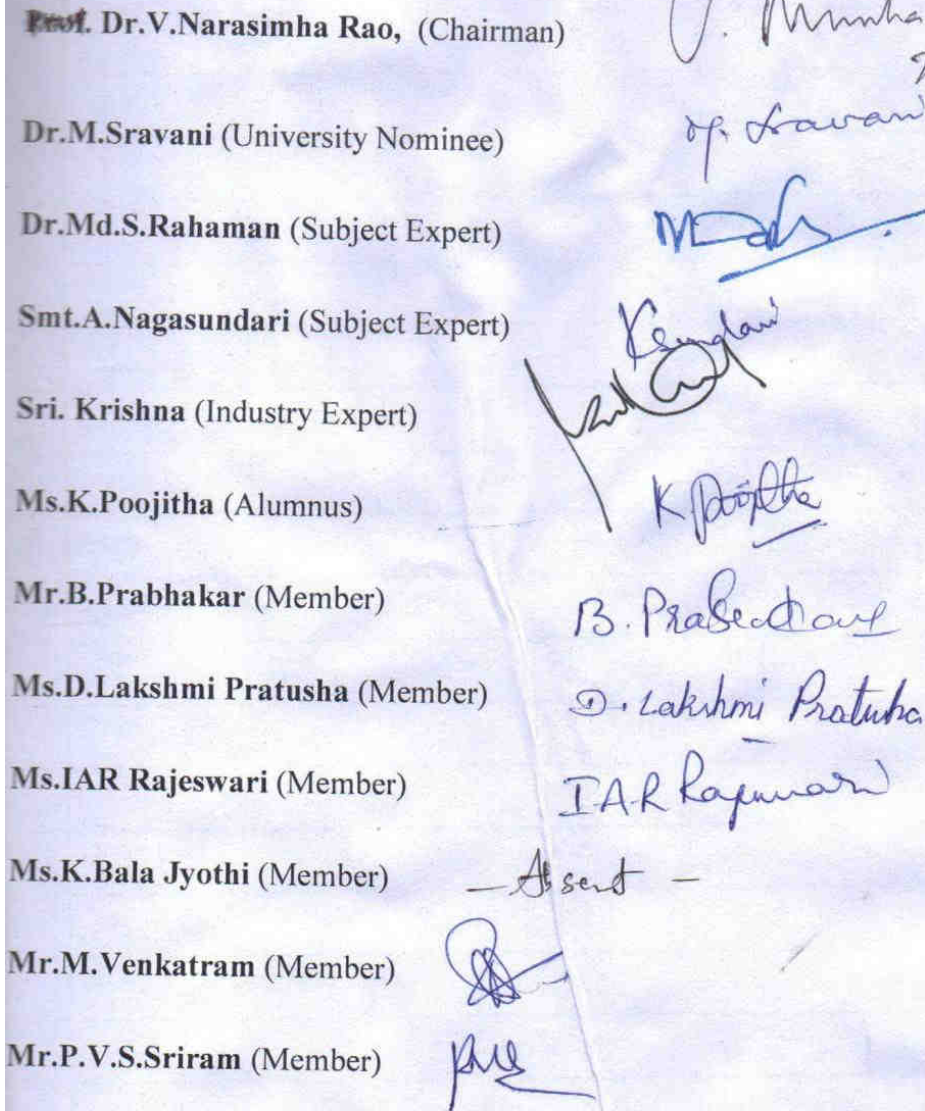 Dr.V.Narasimha Rao, (Chairman)
Dr.M.Sravani (University Nominee) M. Sravani
Dr.Md.S.Rahaman (Subject Expert)
Smt.A.Nagasundari (Subject Expert)
Sri. Krishna (Industry Expert)
Ms.K.Poojitha (Alumnus) K. Poojitha
Mr.B.Prabhakar (Member) B. Prabhakar
Ms.D.Lakshmi Pratusha (Member) D. Lakshmi Pratusha
Ms.IAR Rajeswari (Member) I.A.R Rajeswari
Ms.K.Bala Jyothi (Member) — Absent —
Mr.M.Venkatram (Member)
Mr.P.V.S.Sriram (Member)